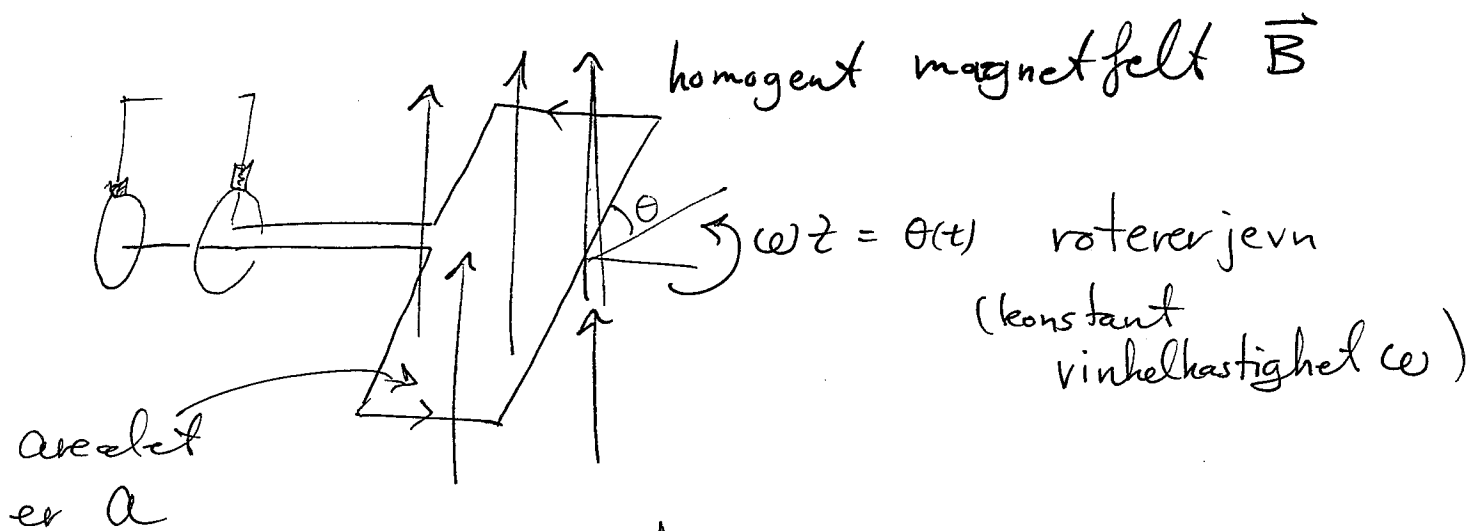 homogent magnetfelt B⃗
θ
ωt = θ(t) roterer jevn
(konstant
vinkelhastighet ω)
arealet
er a